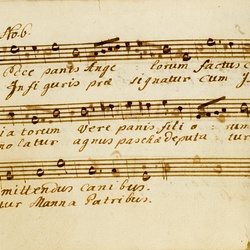 No 6.
Ecce panis Ange lorum factus c
In figuris præ signatur Cum J
ia torum Vere panis fili o rum
mo latur agnus paschæ deputa tur
mittendus canibus.
tur Manna Patribus.